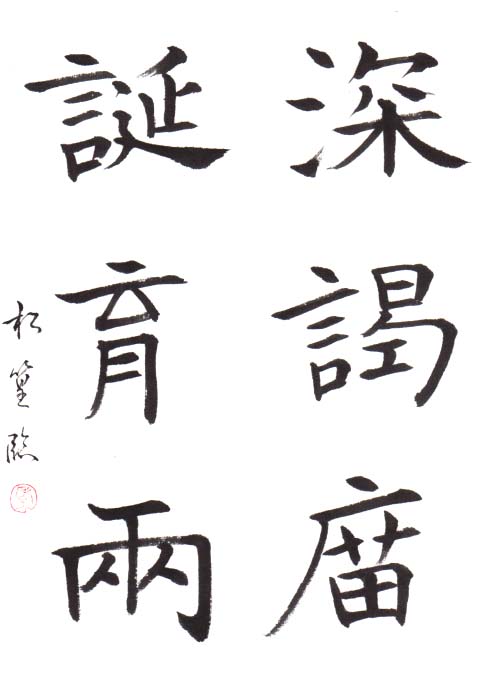 深謁庿
誕育兩
松篁臨